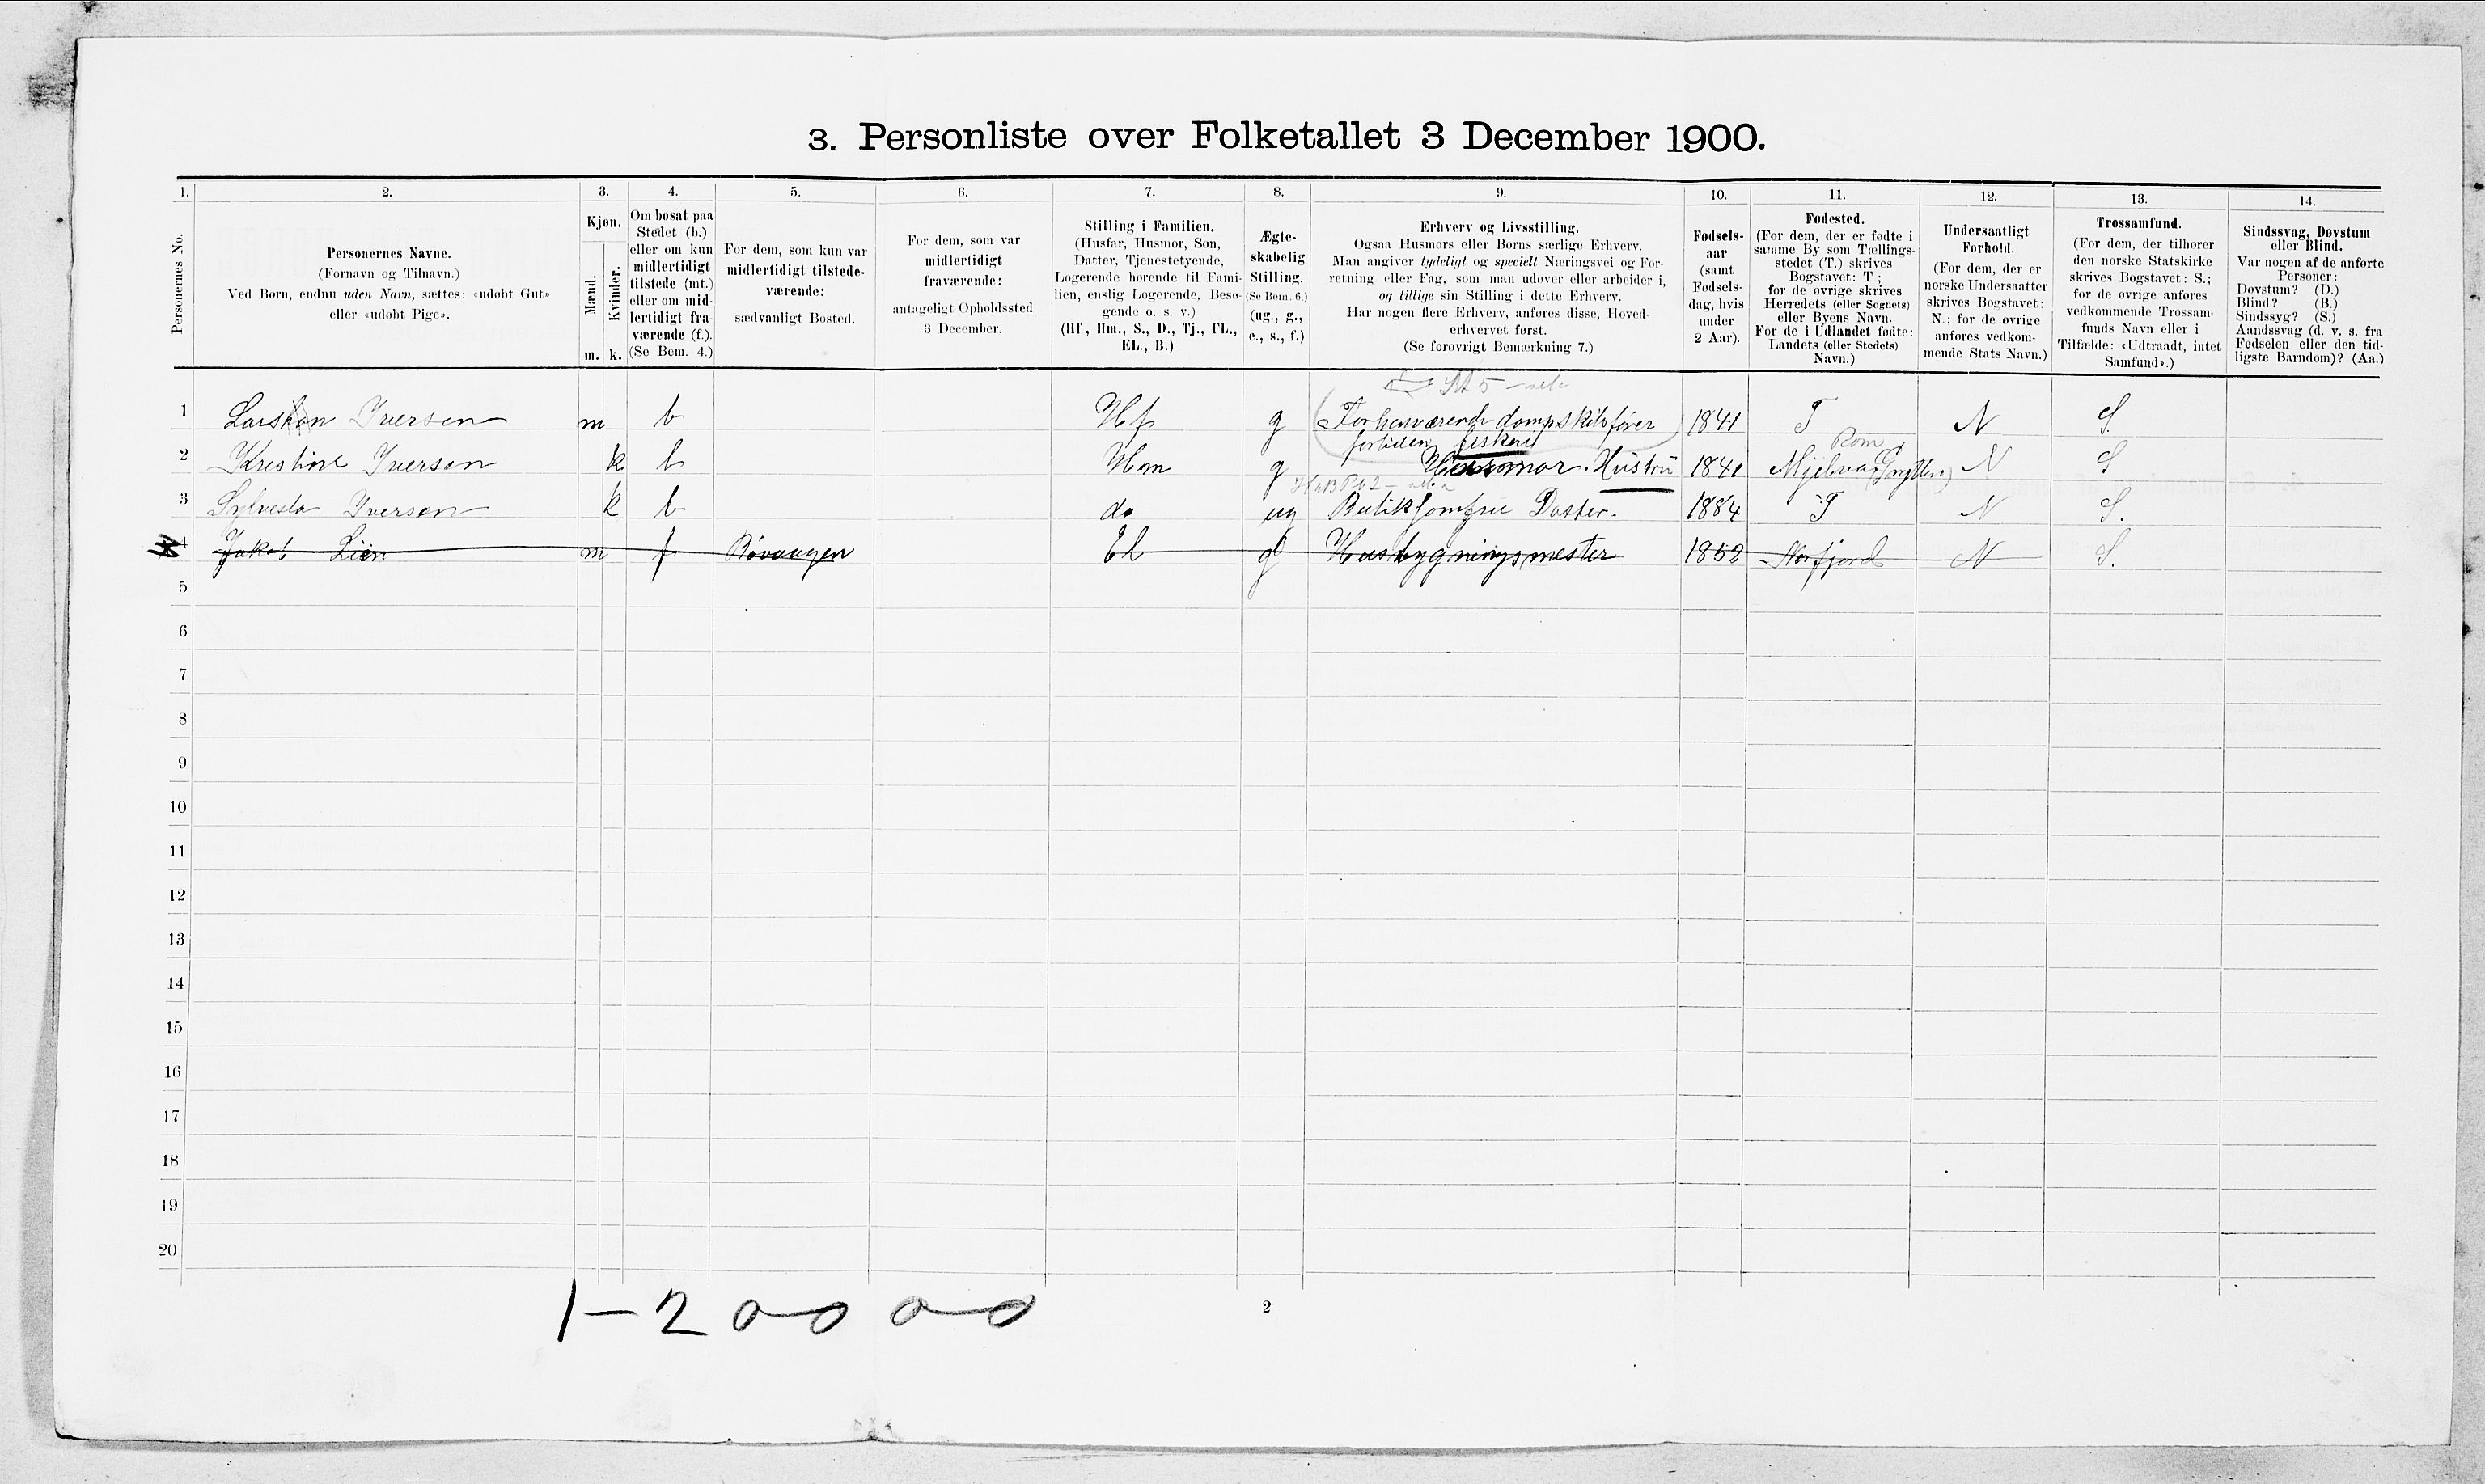 3. Personliste over Folketallet 3 December 1900.
1. 2. 3. 4. 5. 6. 7. 8. 9. 10. 11. 12. 13. 14.
Personernes No.
Personernes Navne.
(Fornavn og Tilnavn.)
Ved Børn, endnu uden Navn, sættes: «udøbt Gut»
eller «udøbt Pige».
Kjøn.
Mænd.
Kvinder.
m. k.
Om bosat paa
Stedet (b.)
eller om kun
midlertidigt
tilstede (mt.)
eller om mid-
lertidigt fra-
værende (f.).
(Se Bem. 4.)
For dem, som kun var
midlertidigt tilstede-
værende:
sædvanligt Bosted.
For dem, som var
midlertidigt
fraværende:
antageligt Opholdssted
3 December.
Stilling i Familien.
(Husfar, Husmor, Søn,
Datter, Tjenestetyende,
Logerende hørende til Fami-
lien, enslig Logerende, Besø-
gende o. s. v.)
(Hf., Hm., S., D., Tj., FL.,
EL., B.)
Ægte-
skabelig
Stilling.
(Se Bem. 6.)
(ug., g.,
e., s., f.)
Erhverv og Livsstilling.
Ogsaa Husmors eller Børns særlige Erhverv.
Man angiver tydeligt og specielt Næringsvei og For-
retning eller Fag, som man udøver eller arbeider i,
og tillige sin Stilling i dette Erhverv.
Har nogen flere Erhverv, anføres disse, Hoved-
erhvervet først.
(Se forøvrigt Bemærkning 7.)
Fødsels-
aar
(samt
Fødsels-
dag, hvis
under
2 Aar).
Fødested.
(For dem, der er fødte i
samme By som Tællings-
stedet (T.) skrives
Bogstavet: T;
for de øvrige skrives
Herredets (eller Sognets)
eller Byens Navn.
For de i Udlandet fødte:
Landets (eller Stedets)
Navn.)
Undersaatligt
Forhold.
(For dem, der er
norske Undersaatter
skrives Bogstavet:
N.; for de øvrige
anføres vedkom-
mende Stats Navn.)
Trossamfund.
(For dem, der tilhører
den norske Statskirke
skrives Bogstavet: S.;
for de øvrige anføres
vedkommende Trossam-
funds Navn eller i
Tilfælde: «Udtraadt, intet
Samfund».)
Sindssvag, Døvstum
eller Blind.
Var nogen af de anførte
Personer:
Døvstum? (D.)
Blind? (B.)
Sindssyg? (S.)
Aandssvag (d. v. s. fra
Fødselen eller den tid-
ligste Barndom)? (Aa.)
1 Iversen m b Hf g Forhenværende dampskibsfører 1841 T N S.
fortiden fisker
2 Kristine Iversen k b Hm g Husmor. Hustru 1840 N S
3 Sylvesta Iversen k b do ug Butikjomfru Datter. 1884 T N S.
4 Jakob Lien m f El g Husbygningsmester 1852 Norfjord N S.
5
6
7
8
9
10
11
12
13
14
15
16
17
18
19
20
2